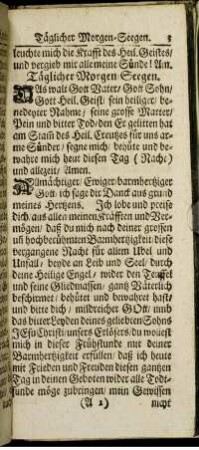 Täglicher Morgen-Seegen. 3
leuchte mich die Krafft des Heil. Geistes/
und vergieb mir alle meine Sünde! Am.
Täglicher Morgen Seegen.
DAs walt Gott Vater/ Gott Sohn/
Gott Heil. Geist/ sein heiliger/ be-
nedeyter Nahme/ seine grosse Marter/
Pein und bitter Tod/ den Er gelitten hat
am Stam des Heil. Creutzes für uns ar-
me Sünder/ segne mich/ behüte und be-
wahre mich heut diesen Tag (Nacht)
und allezeit/ Amen.
ALlmächtiger/ Ewiger barmhertziger
Gott/ ich sage dir Danck aus grund
meines Hertzens. Ich lobe und preise
dich/ aus allen meinen Kräfften und Ver-
mögen/ daß du mich nach deiner grossen
un hochberühmten Barmhertzigkeit diese
vergangene Nacht für allem Ubel und
Unfall/ beyde an Leib und Seel/ durch
deine Heilige Engel/ wider den Teuffel
und seine Gliedmassen/ gantz Väterlich
beschirmet/ behütet und bewahret hast/
und bitte dich/ mildreicher GOtt/ und
das bitter Leyden deines geliebten Sohns
JEsu Christi/ unsers Erlösers/ du wollest
mich in dieser Frühstunde mit deiner
Barmhertzigkeit erfüllen/ daß ich heute
mit Frieden und Freuden diesen gantzen
Tag in deinen Geboten wider alle Todt-
sünde möge zubringen/ mein Gewissen
(A 2) nicht